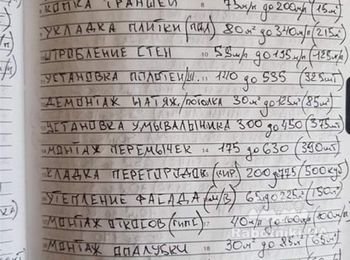 КОПКА ТРАНШЕЙ 75м/р до 200м/р (15м²
УКЛАДКА ПЛИТКИ (ПОЛ) 80м² до 340м/р (215м²
ШТРОБЛЕНИЕ СТЕН 55м/р до 195м/р (125м/р
УСТАНОВКА ПОЛОТЕН/Ш. 140 до 535 (325шт
ДЕМОНТАЖ НАТЯЖ/ПОТОЛКА 30м² до 125м² (85м²
УСТАНОВКА УМЫВАЛЬНИКА 300 до 450 (375шт
МОНТАЖ ПЕРЕМЫЧЕК 175 до 630 (390шт
КЛАДКА ПЕРЕГОРОДОК (КИР) 200 до 775 (500куб
УТЕПЛЕНИЕ ФАСАДА (М/В) 65 до 225м² (150м²
МОНТАЖ ОТКОСОВ (ГИПС) 40м/р до 160м/р (100м/р
МОНТАЖ ОПАЛУБКИ 30м² до 85м² (65м²